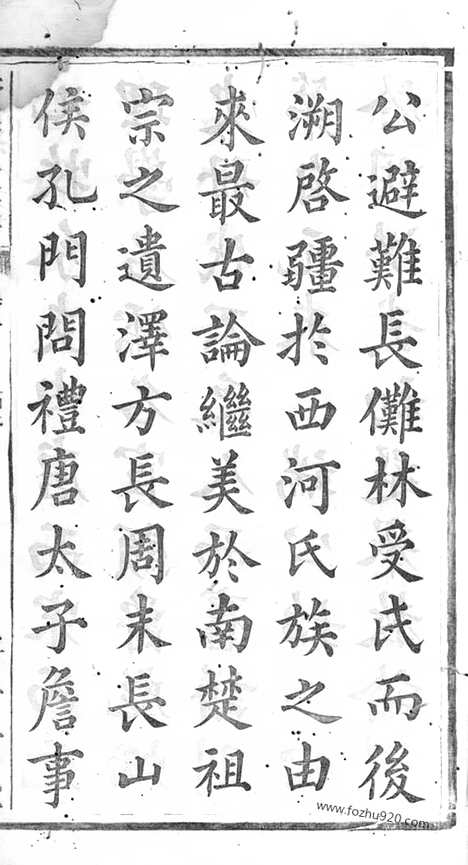 公避難長儺林受氏而後
溯啓疆於西河氏族之由
來最古論繼美於南楚祖
宗之遺澤方長周末長山
侯孔門問禮唐太子詹事
www.fozhu920.com